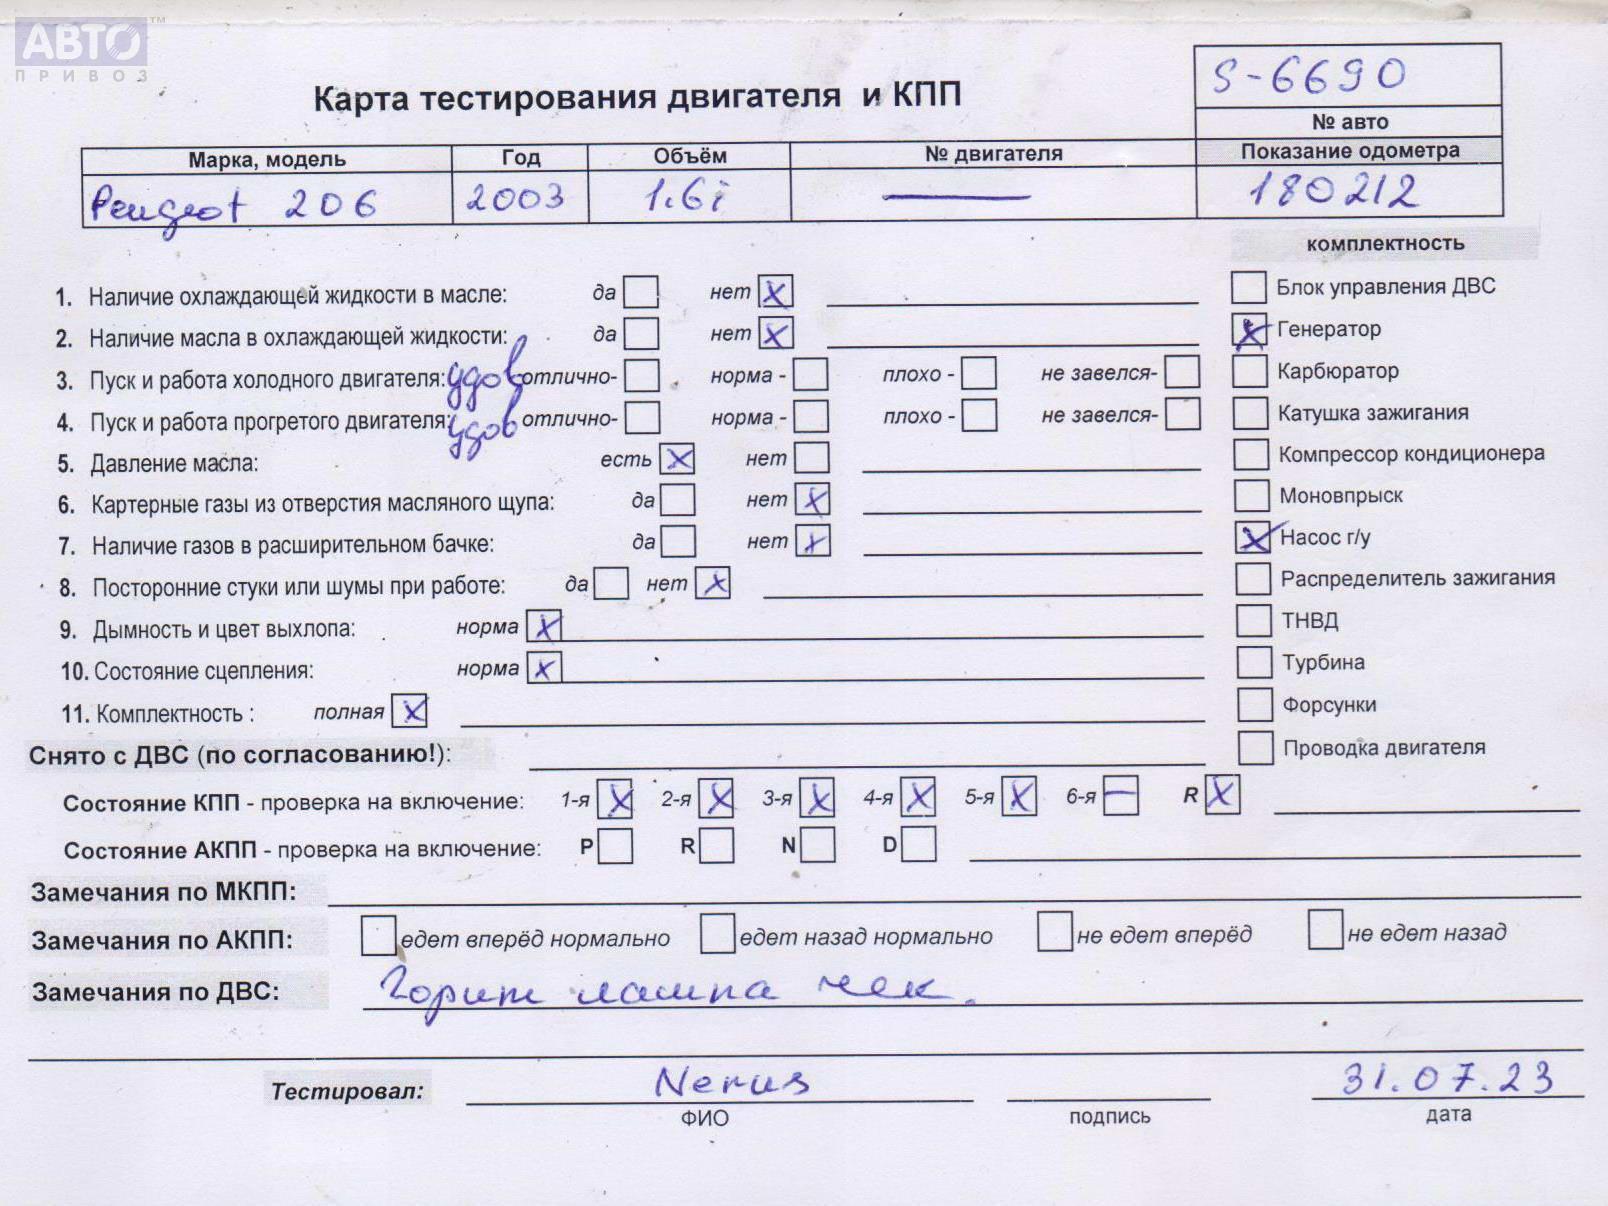 АВТО™
ПРИВОЗ
S-6690
Карта тестирования двигателя и КПП
№ авто
Марка, модель Год Объём № двигателя Показание одометра
Peugeot 206 2003 1.6i — 180212
комплектность
1. Наличие охлаждающей жидкости в масле: да нет X
Блок управления ДВС
2. Наличие масла в охлаждающей жидкости: да нет X
X Генератор
3. Пуск и работа холодного двигателя: удов отлично- норма - плохо - не завелся-
Карбюратор
4. Пуск и работа прогретого двигателя: удов отлично- норма - плохо - не завелся-
Катушка зажигания
5. Давление масла: есть X нет
Компрессор кондиционера
6. Картерные газы из отверстия масляного щупа: да нет X
Моновпрыск
7. Наличие газов в расширительном бачке: да нет X
X Насос г/у
8. Посторонние стуки или шумы при работе: да нет X
Распределитель зажигания
9. Дымность и цвет выхлопа: норма X
ТНВД
10. Состояние сцепления: норма X
Турбина
11. Комплектность : полная X
Форсунки
Снято с ДВС (по согласованию!):
Проводка двигателя
Состояние КПП - проверка на включение: 1-я X 2-я X 3-я X 4-я X 5-я X 6-я — R X
Состояние АКПП - проверка на включение: P R N D
Замечания по МКПП:
Замечания по АКПП: едет вперёд нормально едет назад нормально не едет вперёд не едет назад
Замечания по ДВС: Горит лампа чек.
Тестировал: 31.07.23
ФИО подпись дата